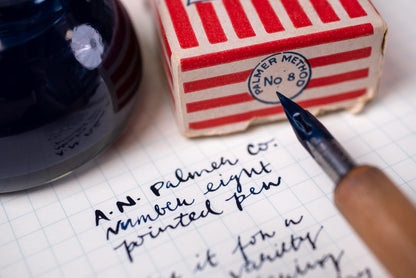 PALMER METHOD
No 8
A.N. Palmer Co.
number eight
pointed pen
it for a